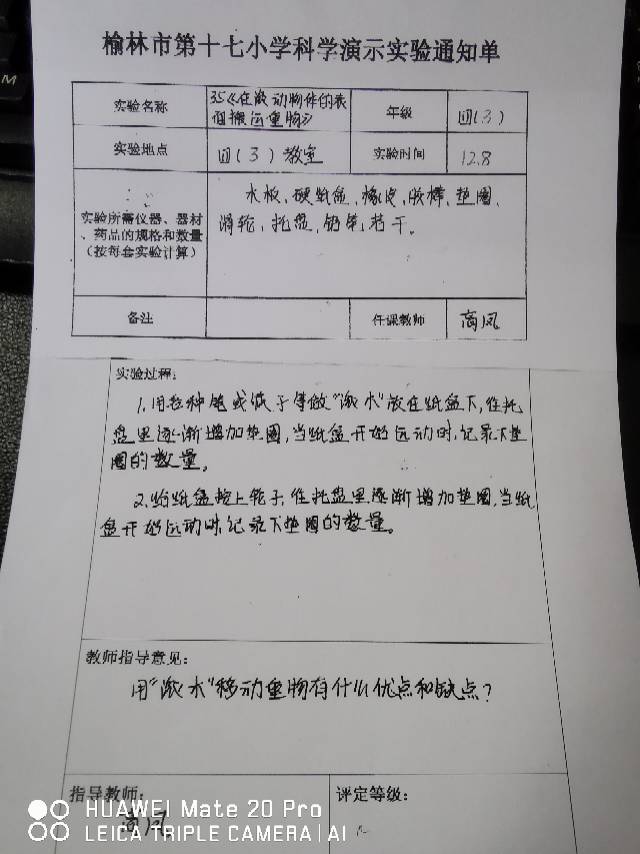 榆林市第十七小学科学演示实验通知单
实验名称
35《在滚动物体的表
面搬运重物》
年级
四(3)
实验地点
四(3)教室
实验时间
12.8
实验所需仪器、器材
、药品的规格和数量
(按每套实验计算)
木板、硬纸盒、橡皮、胶棒、垫圈、
滑轮、托盘、铅笔,若干。
备注
任课教师
高凤
实验过程:
1.用各种笔或筷子等做"滚木"放在纸盒下,往托
盘里逐渐增加垫圈,当纸盒开始运动时,记录下垫
圈的数量。
2.给纸盒按上轮子,往托盘里逐渐增加垫圈,当纸
盒开始运动时,记录下垫圈的数量。
教师指导意见:
用"滚木"移动重物有什么优点和缺点?
指导教师:
高凤
评定等级:
HUAWEI Mate 20 Pro
LEICA TRIPLE CAMERA | AI